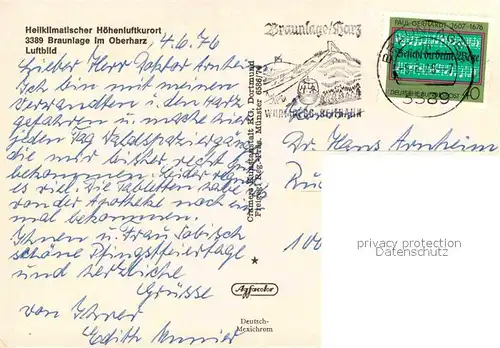 Heilklimatischer Höhenluftkurort
3389 Braunlage im Oberharz
Luftbild
4.6.76
Lieber Herr Doktor Arnheim
Ich bin mit meinen
Verwandten i. den Harz
gefahren u. mache hier
jeden Tag Waldspaziergänge
die mir bisher recht gut
bekommen. Leider regnet
es viel. Die Tabletten habe
von der Apotheke noch ein
mal bekommen.
Ihnen u. Frau
schöne Pfingstfeiertage
und herzliche
Grüsse
von Ihrer
Edith
Cramers Kunstanstalt KG Dortmund
Braunlage/Harz
WURMBERG-SEILBAHN
PAUL GERHARDT 1607-1676
Befiehl du deine Wege
DEUTSCHE BUNDESPOST 40
3389
Dr. Hans Arnheim
100
privacy protection
Datenschutz
Agfacolor
Deutsch-
Mexichrom